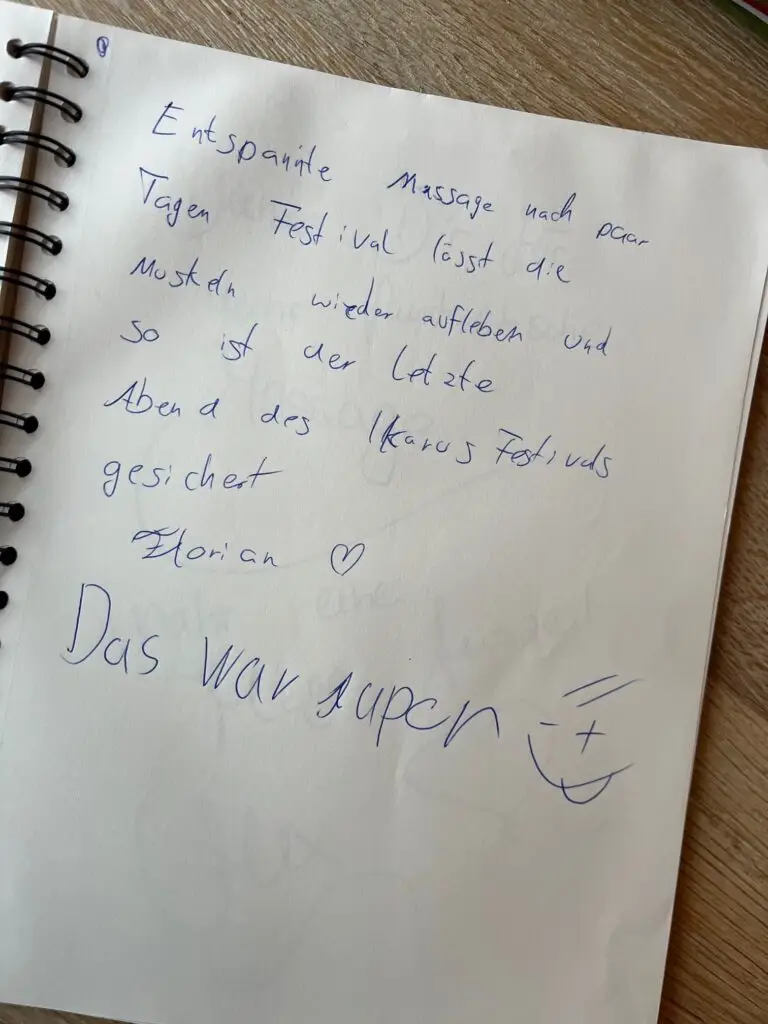 Entspannte Massage nach paar
Tagen Festival lässt die
Muskeln wieder aufleben und
so ist der letzte
Abend des Ikarus Festivals
gesichert
Florian ♡
Das war super